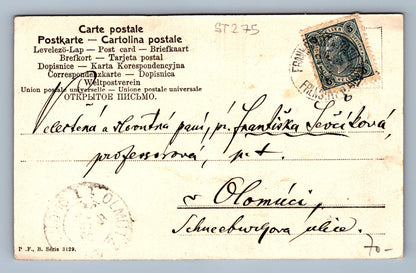 Carte postale
ST275
Postkarte — Cartolina postale
Levelező-Lap — Post card — Briefkaart
Brefkort — Tarjeta postal
Dopisnice — Karta Korespondencyjna
Correspondenzkarte — Dopisnica
Weltpostverein
Union postale universelle — Unione postale universale
ОТКРЫТОЕ ПИСЬМО.
slovutná paní, pí Františka Ševčíková,
professorová, p. t.
v Olomúci,
Schneeburgova ulice.
70-
P. F., B. Série 3129.